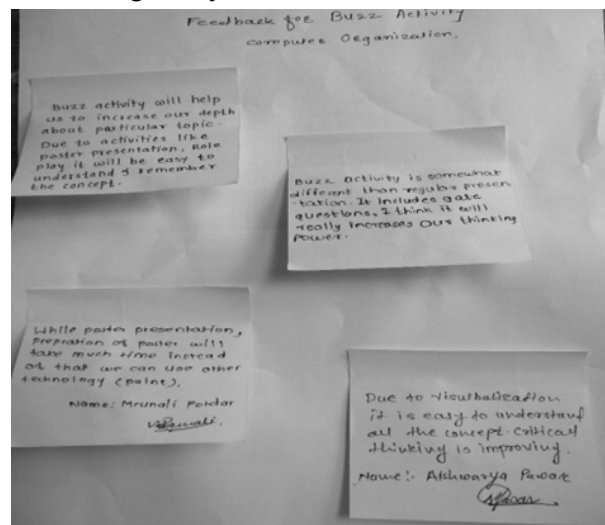 Feedback for Buzz Activity
Computer Organization.
Buzz activity will help
us to increase our depth
about particular topic.
Due to activities like
poster presentation, Role
play it will be easy to
understand & remember
the concept.
Buzz activity is somewhat
different than regular presen
-tation. It includes gate
questions, I think it will
really increases our thinking
Power.
While poster presentation,
prepration of poster will
take much time instead
of that we can use other
technology (paint).
Name: Mrunali
Due to visulbalization
it is easy to understand
all the concept. Critical
thinking is improving.
Name:- Aishwarya Pawar
Pawar